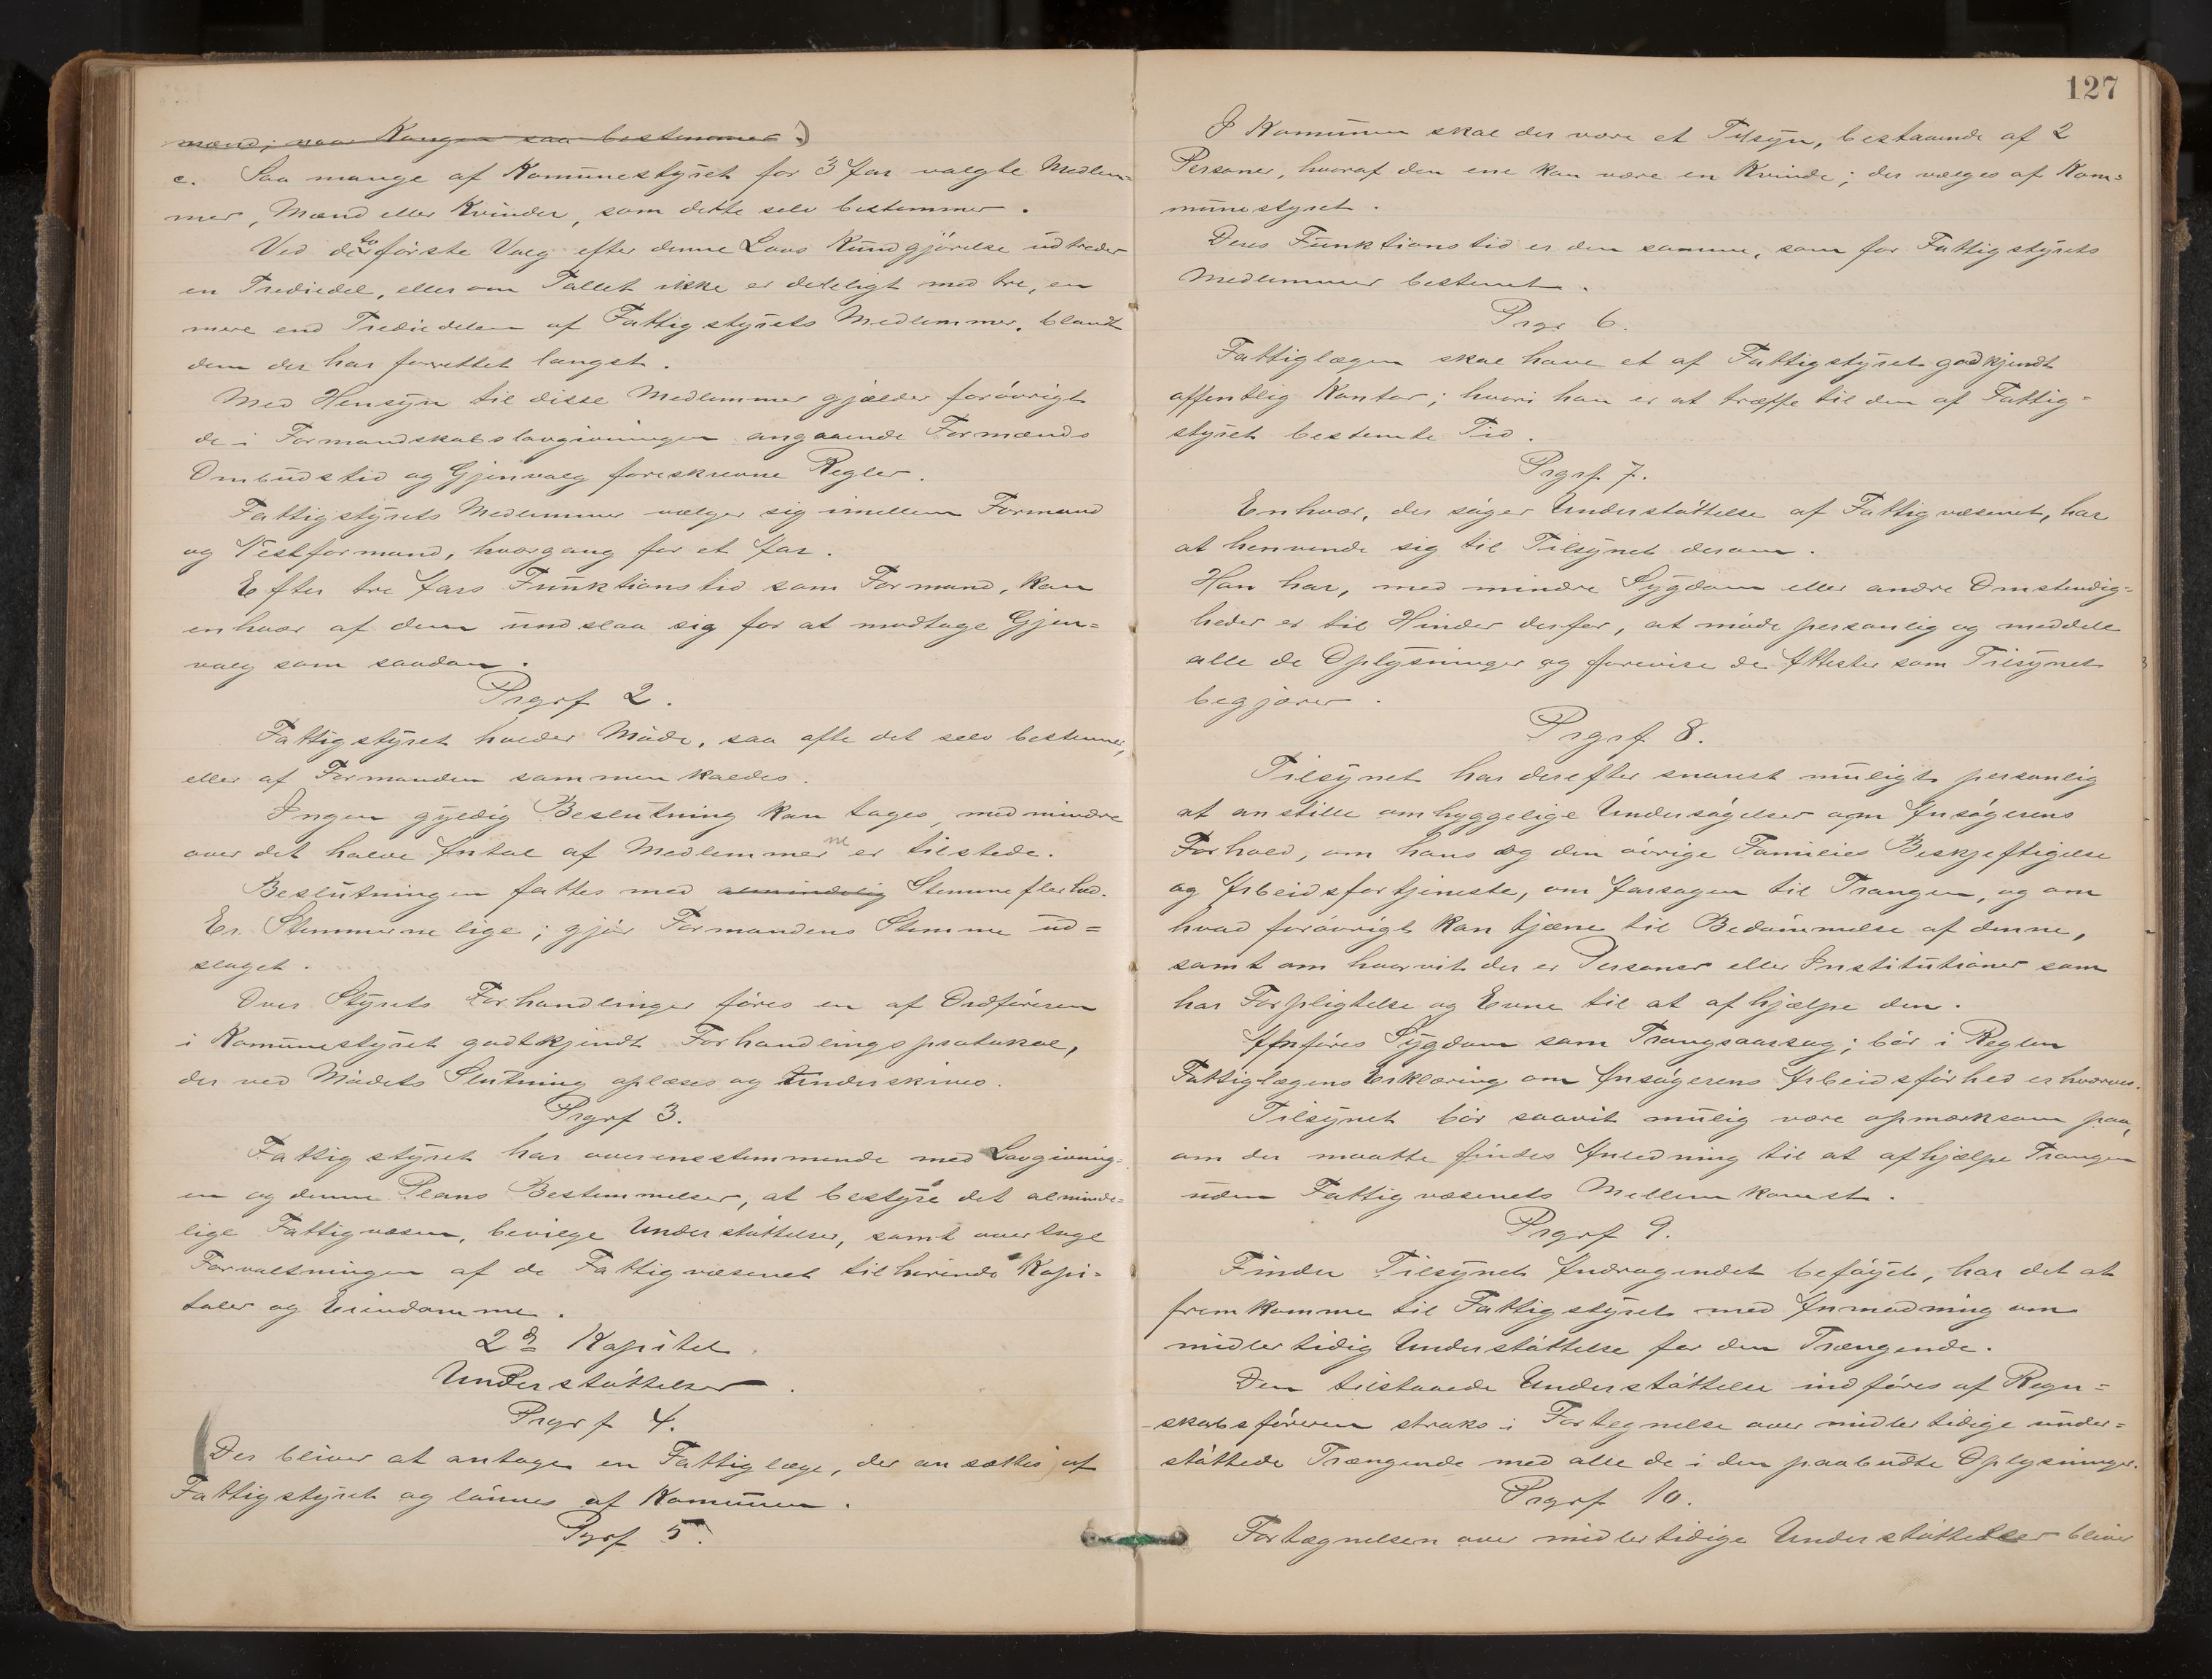 mænd; naar Kongen saa bestemmer)
c. Saa mange af Komunestyret for 3 Aar valgte Medlem=
mer, Mænd eller Kvinder, som dette selv bestemmer.
Ved de to første Valg efter denne Lovs Kundgjørelse udtræder
en Trediedel, eller om Tallet ikke er deleligt med tre, en
mere end Trediedelen af Fattigstyrets Medlemmer, blandt
dem der har forrettet længst.
Med Hensyn til disse Medlemmer gjælder forøvrigt
de i Formandskabslovgivningen angaaende Formænds
Ombudstid og Gjenvalg foreskrevne Regler.
Fattigstyrets Medlemmer vælger sig imellem Formand
og Vestformand, hvergang for et Aar.
Efter tre Aars Funktionstid som Formand, kan
enhver af dem undslaa sig for at modtage Gjen=
valg som saadan.
Prgrf 2.
Fattigstyret holder Møde, saa ofte det selv bestemmer,
eller af Formanden sammenkaldes.
Ingen gyldig Beslutning kan tages, medmindre
over det halve Antal af Medlemmerne er tilstede.
Beslutningen fattes med almindelig Stemmeflerhed.
Er Stemmerne lige; gjør Formandens Stemme ud=
slaget.
Over Styrets Forhandlinger føres en af Ordføreren
i Komunestyret godtkjendt Forhandlingsprotokol,
der ved Mødets Slutning oplæses og Underskrives.
Prgrf 3.
Fattigstyret har overensstemmende med Lovgivning=
en og denne Plans Bestemmelser, at bestyre det alminde=
lige Fattigvæsen, bevilge Understøttelser, samt overtage
Forvaltningen af de Fattigvæsenet tilhørende Kapi=
taler og Eiendomme.
2det Kapitel.
Understøttelser.
Prgrf 4.
Der bliver at antage en Fattiglæge, der ansættes af
Fattigstyret og lønnes af Komunen.
Pgrf 5.
127
I Komunen skal der være et Tilsyn, bestaaende af 2
Personer, hvoraf den ene kan være en Kvinde; der vælges af Kom=
munestyret.
Deres Funktionstid er den samme, som for Fattigstyrets
Medlemmer bestemt.
Prgr 6.
Fattiglægen skal have et af Fattigstyret godkjendt
offentlig Kontor; hvori han er at træffe til den af Fattig=
styret bestemte Tid.
Prgrf 7.
Enhver, der søger Understøttelse af Fattigvæsenet, har
at henvende sig til Tilsynet derom.
Han har, med mindre Sygdom eller andre Omstendig=
heder er til Hinder derfor, at møde personlig og meddele
alle de Oplysninger og forevise de Attester som Tilsynet
begjærer.
Prgrf 8.
Tilsynet har derefter snarest muligt personlig
at anstille omhyggelige Undersøgelser om Ansøgerens
Forhold, om hans og den øvrige Families Beskjeftigelse
og Arbeidsfortjeneste, om Aarsagen til Trangen, og om
hvad forøvrigt kan tjene til Bedømmelse af denne,
samt om hvorvit der er Personer eller Institutioner som
har Forpligtelse og Evne til at afhjælpe den.
Anføres Sygdom som Trangsaarsag; bør i Reglen
Fattiglægens Erklæring om Ansøgerens Arbeidsførhed erhverves.
Tilsynet bør saavit mulig være opmærksom paa,
om der maatte findes Anledning til at afhjælpe Trangen
uden Fattigvæsenets Mellemkomst.
Prgrf 9.
Finder Tilsynet Andragendet beføyet, har det at
fremkomme til Fattigstyret med Anmodning om
midlertidig Understøttelse for den Trængende.
Den tilstaaede Understøttelse indføres af Regn=
skabsføreren straks i Fortegnelse over midlertidige under=
støttede Trængende med alle de i den paabudte Oplysninger.
Prgrf 10.
Fortegnelsen over midlertidige Understøttelser bliver